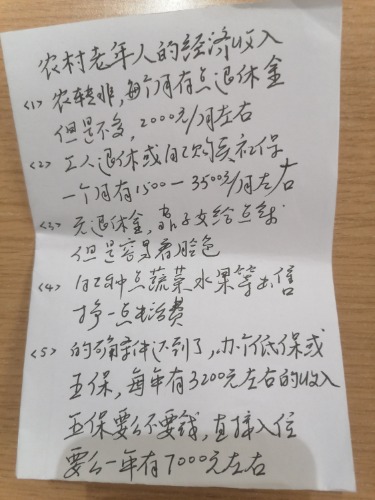 农村老年人的经济收入
<1> 农转非，每个月有点退休金
但是不多，2000元/月左右
<2> 工人退休或自己购买社保
一个月有1500一3500元/月左右
<3> 无退休金，靠子女给点钱
但是容易看脸色
<4> 自己种点蔬菜水果等出售
挣一点生活费
<5> 的确条件达到了，办个低保或
五保，每年有3200元左右的收入
五保要么不要钱，直接入住
要么一年有7000元左右